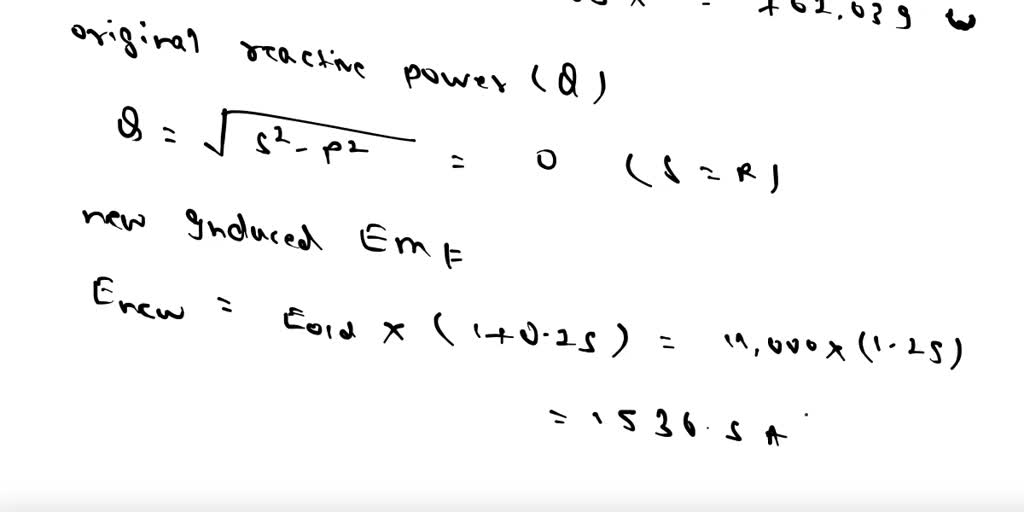 = 762.039 w
original reactive power (Q)
Q = √ S² - P² = 0 (S = P)
new Induced Emf
Enew = Eold x (1+0.25) = 11,000 x (1.25)
= 1536.5 A